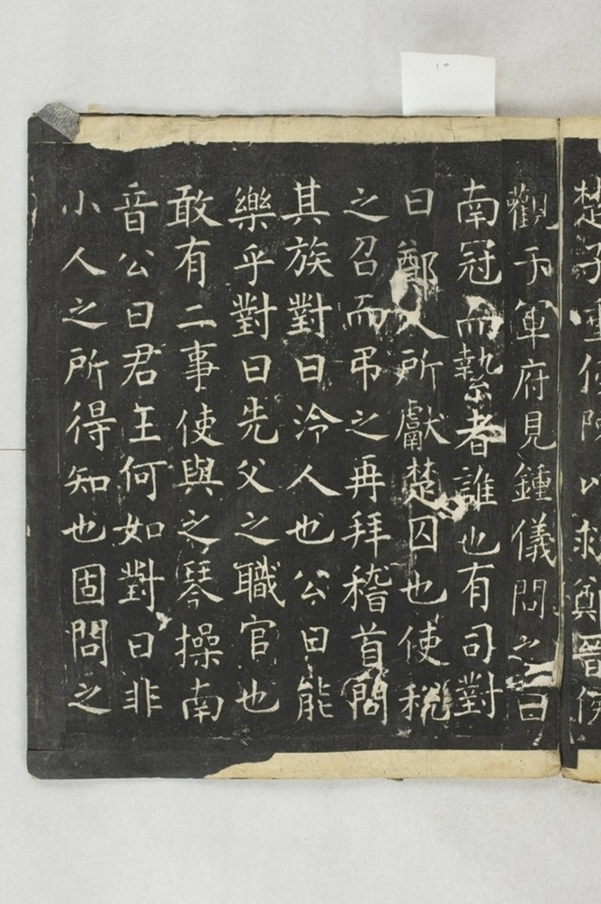 楚子重侵陳以救鄭晉侯
觀于軍府見鍾儀問之曰
南冠而縶者誰也有司對
曰鄭人所獻楚囚也使稅
之召而弔之再拜稽首問
其族對曰泠人也公曰能
樂乎對曰先父之職官也
敢有二事使與之琴操南
音公曰君王何如對曰非
小人之所得知也固問之